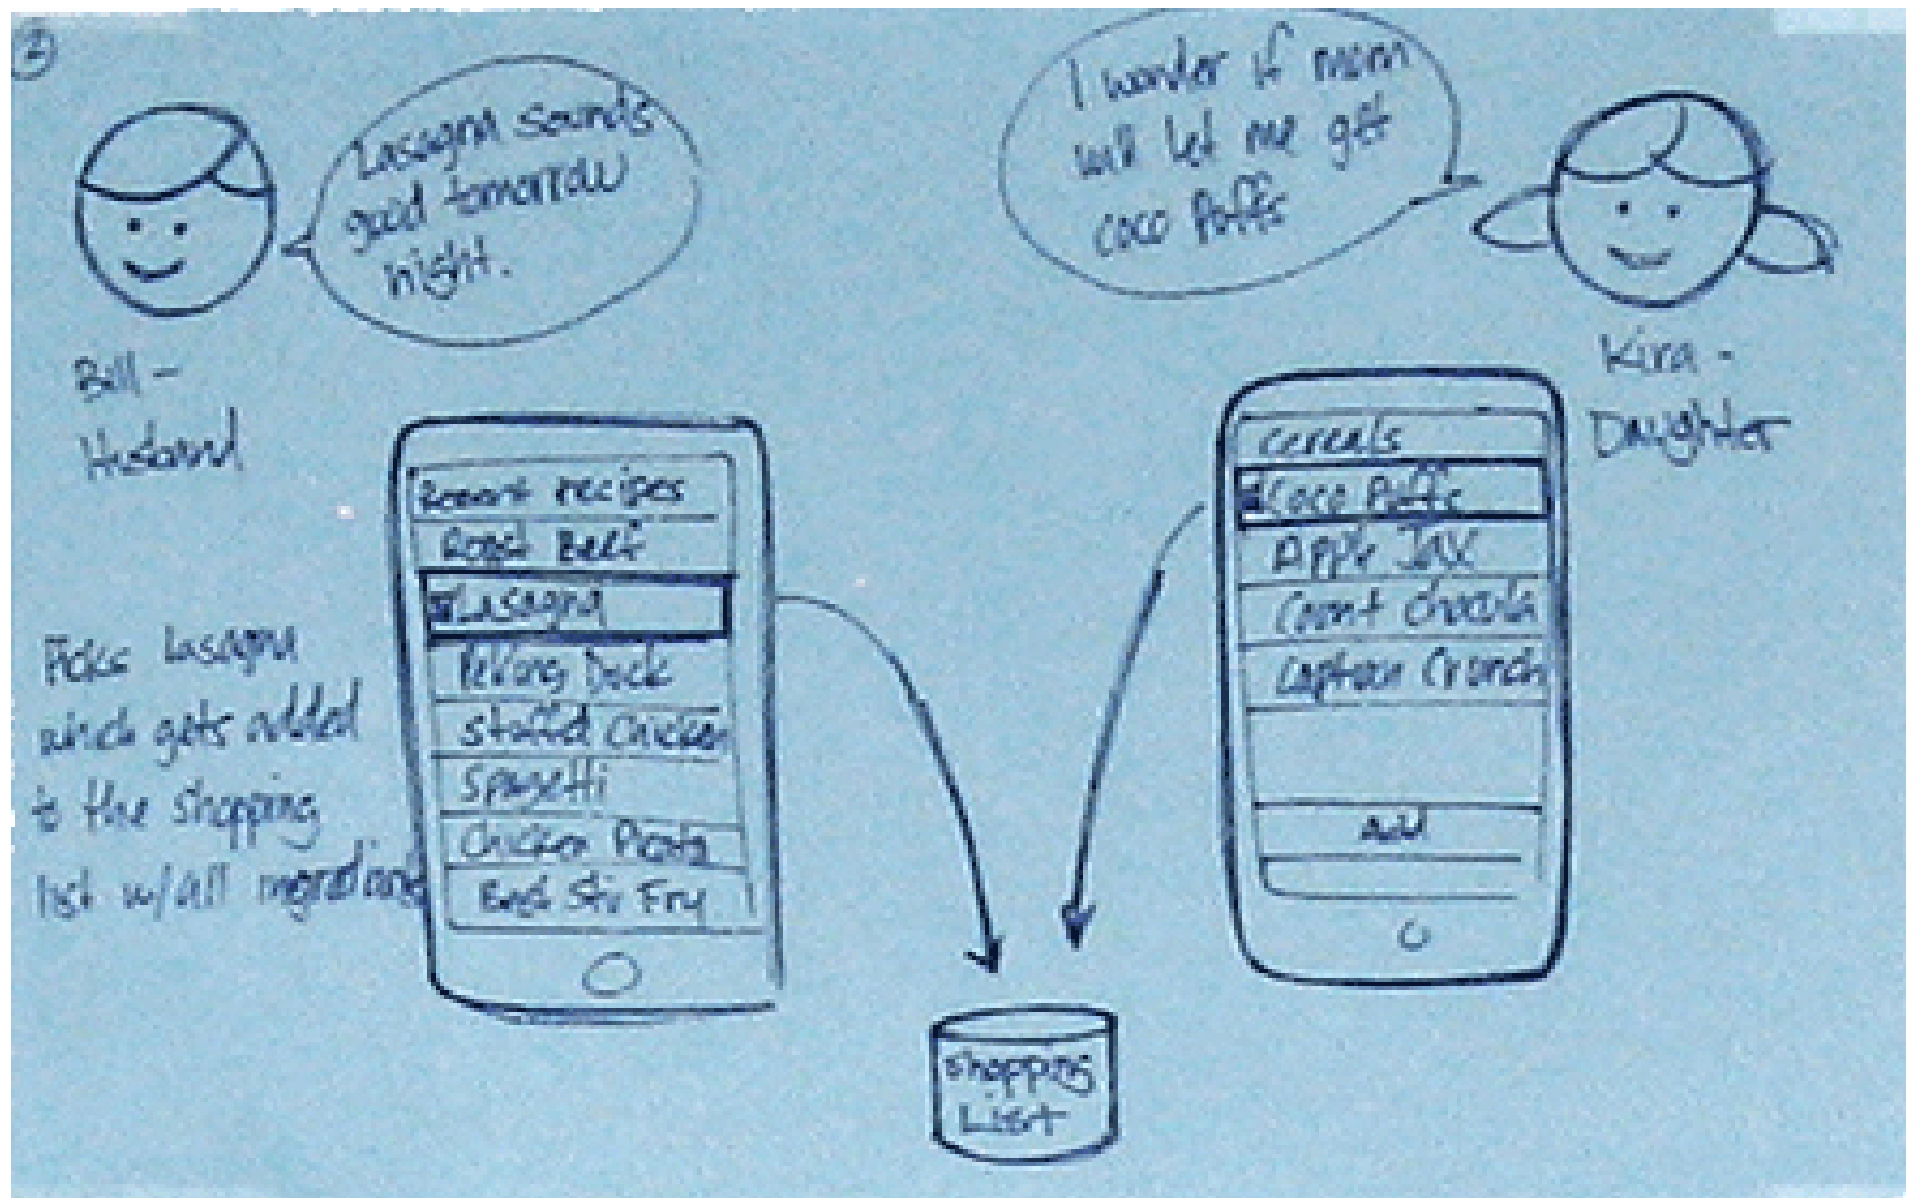 2
Lasagna sounds
good tomorrow
night.
Bill -
Husband
I wonder if mom
will let me get
coco Puffs
Kira -
Daughter
Picks lasagna
which gets added
to the shopping
list w/all
recipes
Roast Beef
Lasagna
Peking Duck
Stuffed Chicken
Spagetti
Chicken
Stir Fry
Cereals
Coco Puffs
Apple Jax
Count Chocula
Captain Crunch
Add
Shopping
List